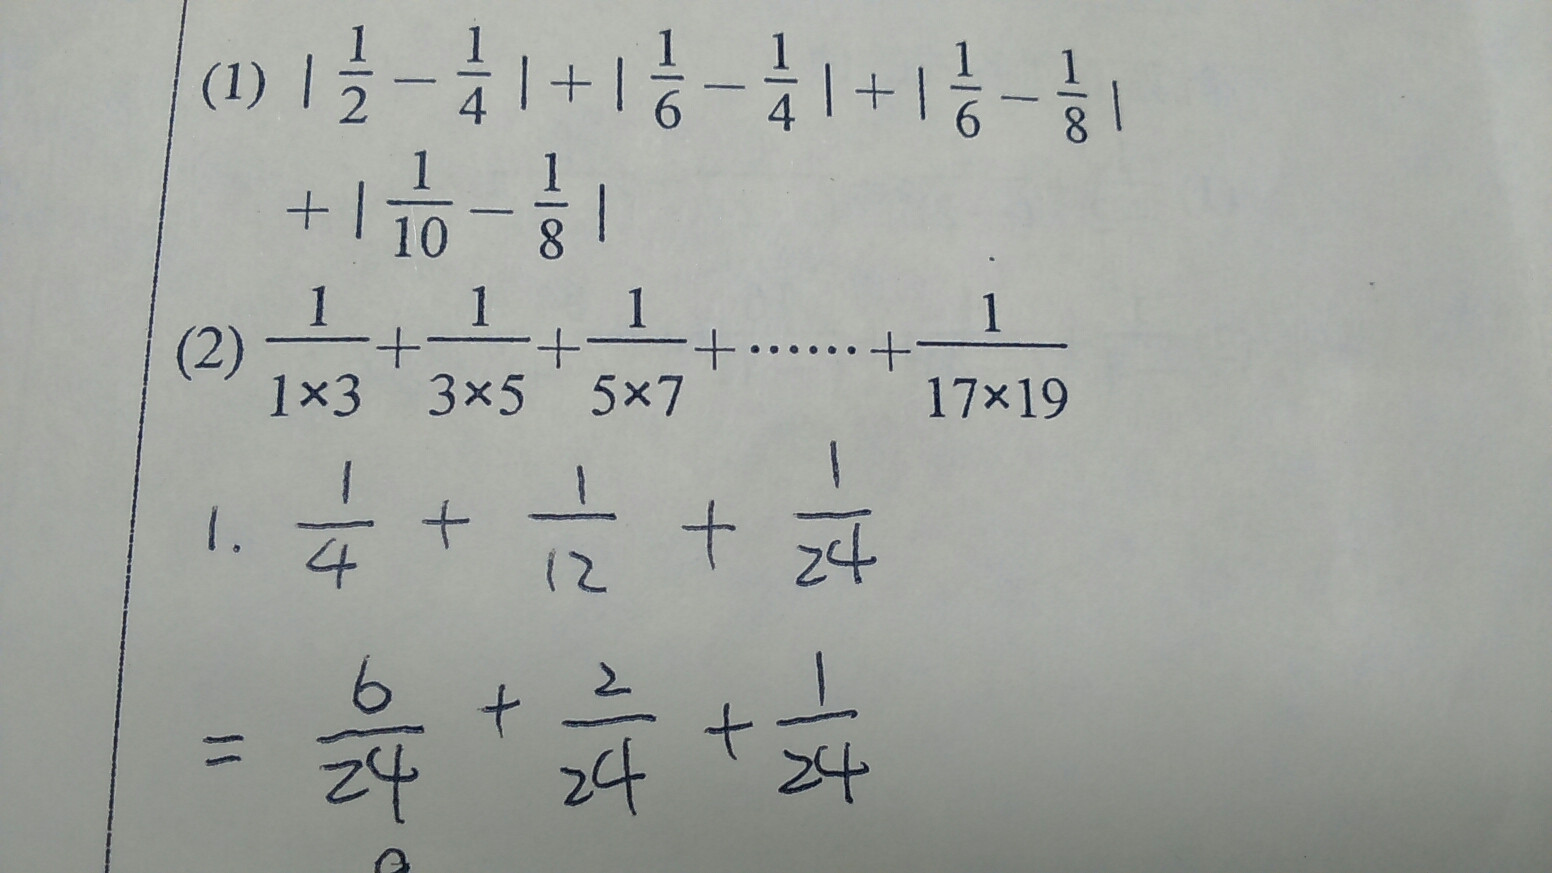 (1) |1/2 − 1/4| + |1/6 − 1/4| + |1/6 − 1/8|
+ |1/10 − 1/8|
(2) 1/(1×3) + 1/(3×5) + 1/(5×7) + …… + 1/(17×19)
1. 1/4 + 1/12 + 1/24
= 6/24 + 2/24 + 1/24